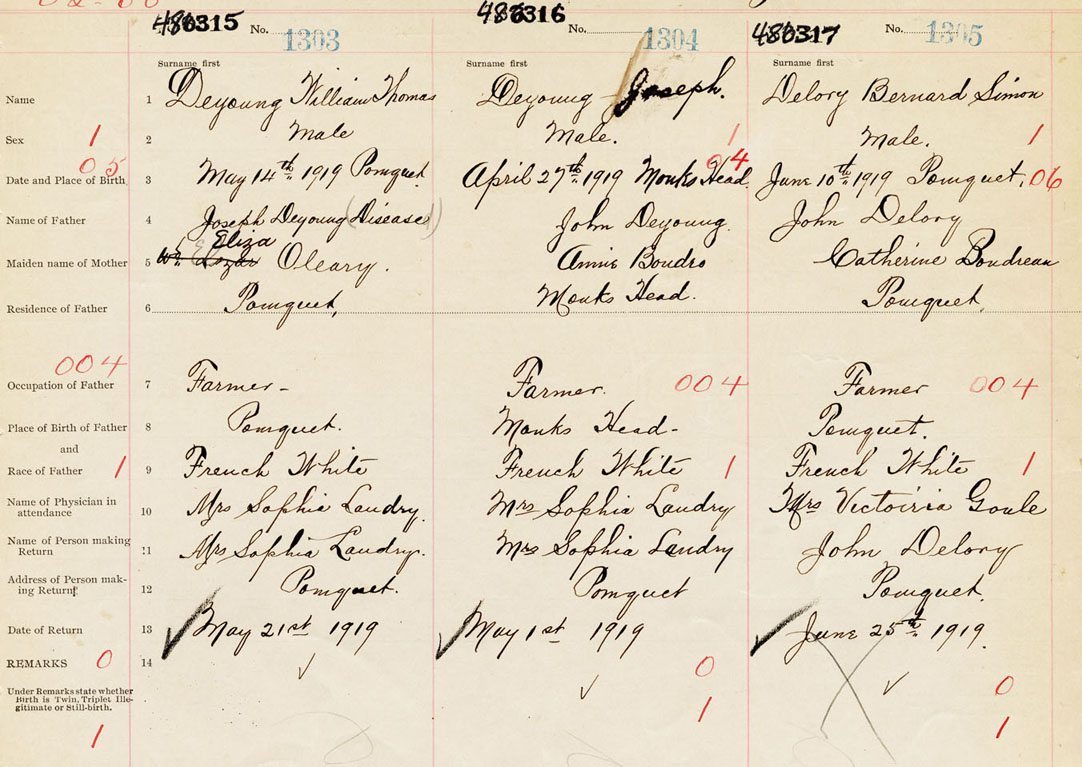 486315 No. 1303
486316 No. 1304
486317 No. 1305
Surname first Surname first Surname first
Name 1 Deyoung William Thomas Deyoung Joseph. Delory Bernard Simon
Sex 1 2 Male Male. 1 Male. 1
05 04
Date and Place of Birth 3 May 14th 1919 Pomquet April 27th 1919 Monks Head June 10th 1919 Pomquet, 06
Name of Father 4 Joseph Deyoung (Disease) John Deyoung. John Delory
Eliza
Maiden name of Mother 5 Oleary. Annie Boudro Catherine Boudreau
Residence of Father 6 Pomquet, Monks Head. Pomquet.
004
Occupation of Father 7 Farmer- Farmer. 004 Farmer 004
Place of Birth of Father 8 Pomquet. Monks Head- Pomquet.
and
Race of Father 1 9 French White French White 1 French White 1
Name of Physician in
attendance 10 Mrs Sophia Landry. Mrs Sophia Landry Mrs Victoiria Goule
Name of Person making
Return 11 Mrs Sophia Landry. Mrs Sophia Landry John Delory
Address of Person mak-
ing Return 12 Pomquet. Pomquet Pomquet.
Date of Return 13 May 21st 1919 May 1st 1919 June 25th 1919.
REMARKS 0 14 0 0
Under Remarks state whether
Birth is Twin, Triplet Ille-
gitimate or Still-birth.
1 1 1